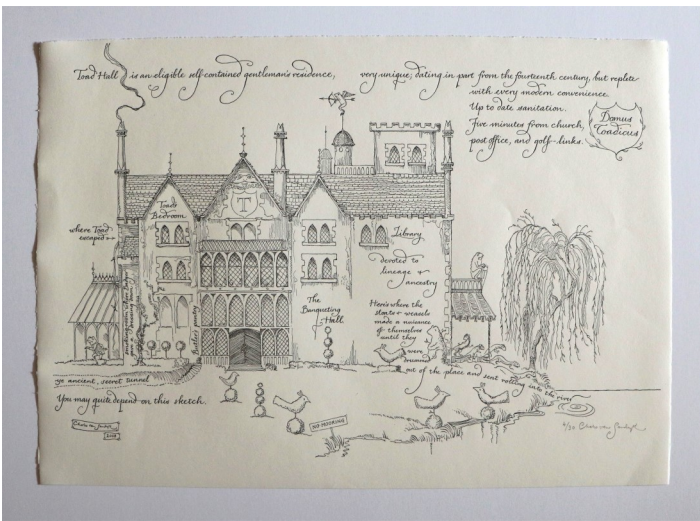 Toad Hall is an eligible self-contained gentleman's residence, very unique; dating in part from the fourteenth century, but replete
with every modern convenience.
Up to date sanitation.
Five minutes from church,
post office, and golf-links.
Domus
Toadicus
Toad's
Bedroom
T
where Toad
escaped
Library
devoted to
lineage &
ancestry
The
Banqueting
Hall
Butler's pantry
Here's where the
stoats & weasels
made a nuisance
of themselves
until they
were
drummed
out of the place and sent rolling into the river
ye ancient, secret tunnel
You may quite depend on this sketch.
NO MOORING